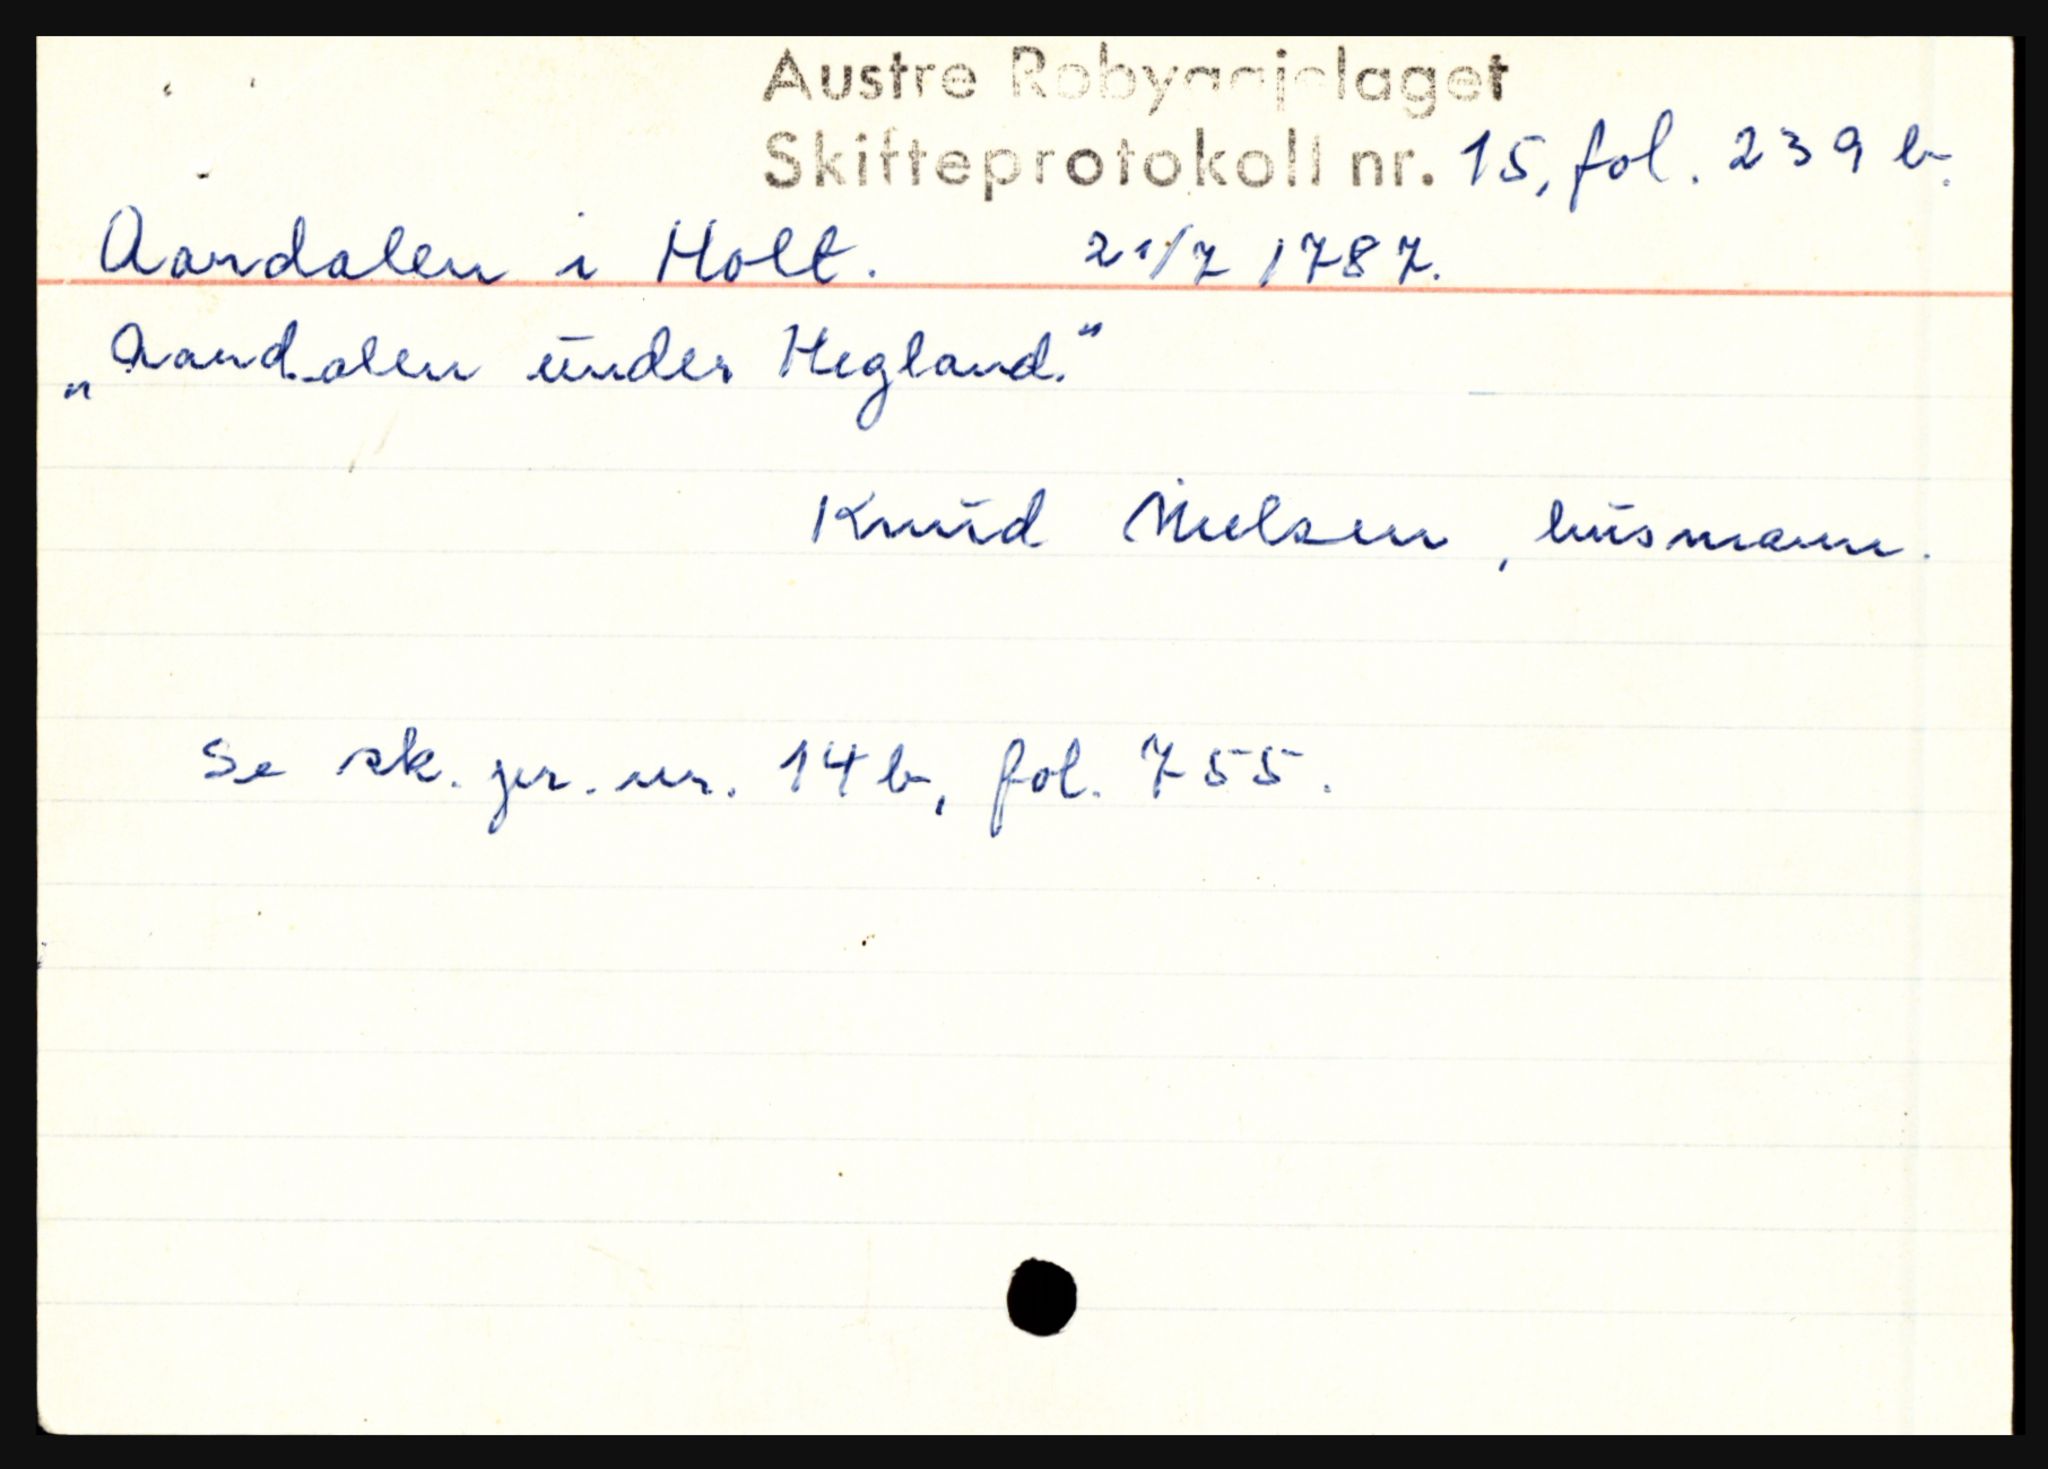 Austre Robyggjelaget
Skifteprotokoll nr. 15, fol. 239 b.
Aardalen i Holt. 21/7 1787.
„Aardalen under Hegland.“
Knud Nielsen, husmann.
Se sk. pr. nr. 14 b, fol. 755.